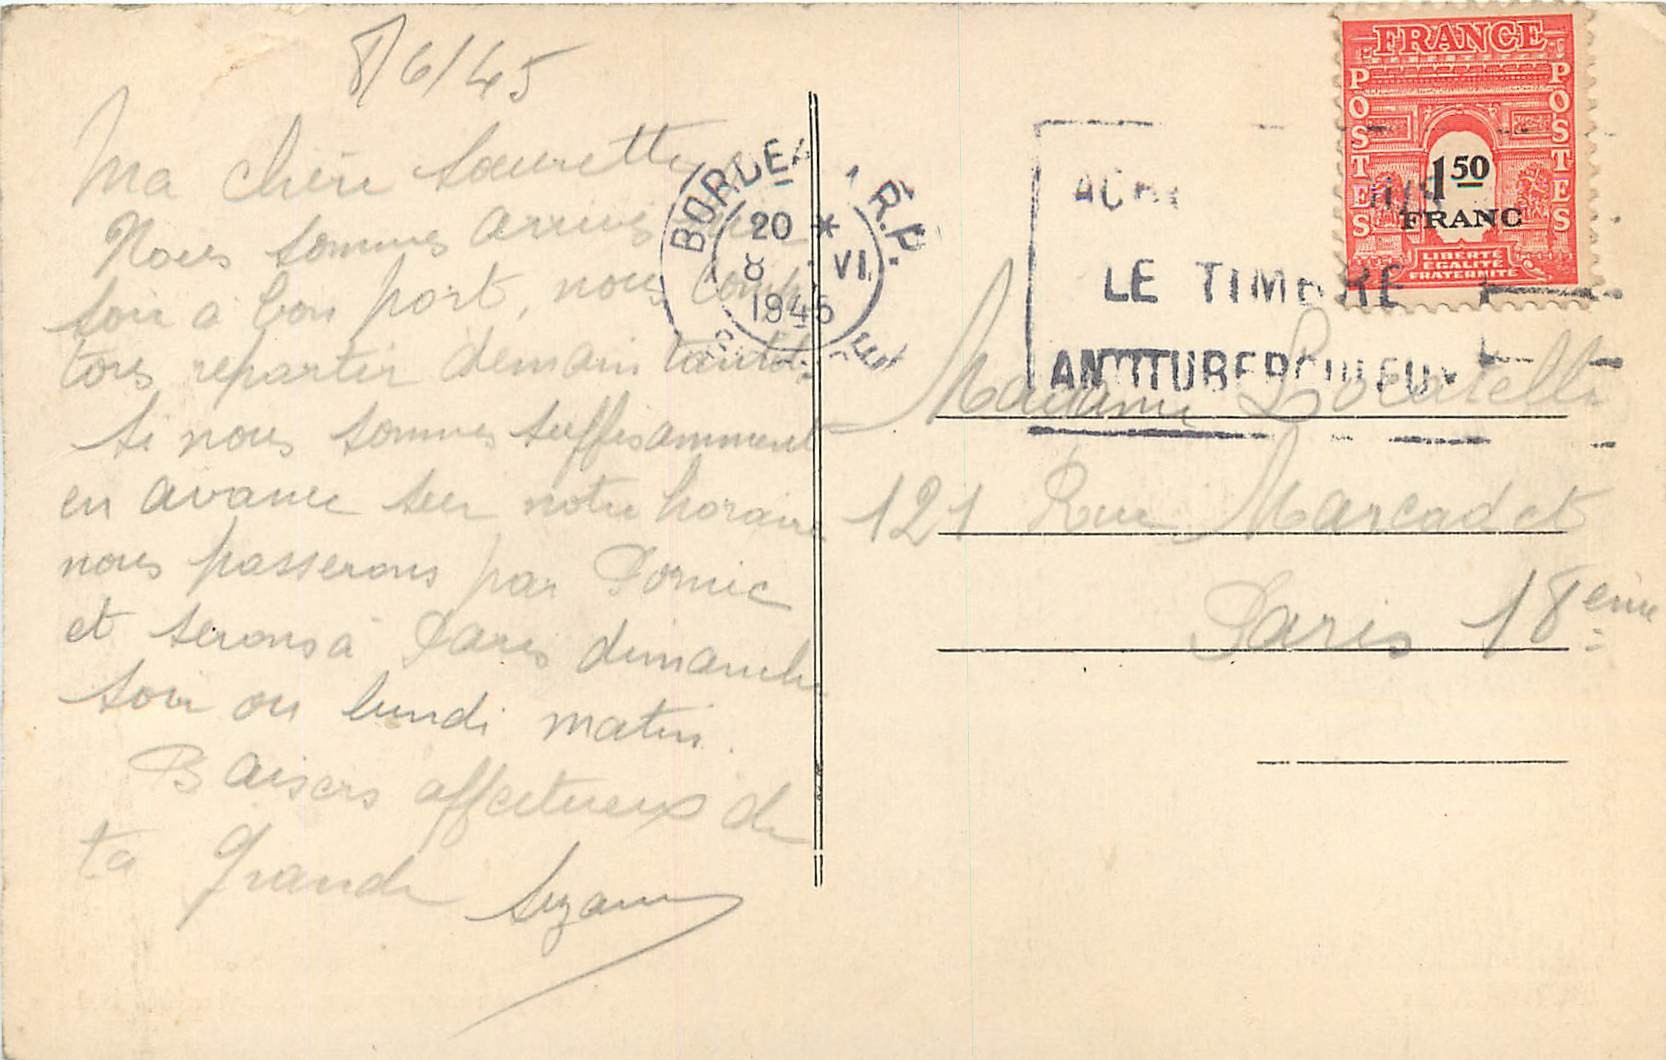 8/6/45
Ma chère Sœurette
Nous sommes arrivés
soir à bon port, nous comp
tons repartir demain tantôt.
Si nous sommes suffisamment
en avance sur notre horaire
nous passerons par Pornic
et serons à Paris dimanche
soir ou lundi matin.
Baisers affectueux de
ta grande Suzanne
BORDEA R.P.
20 *
8 VI
1945
LE TIMBRE
ANTITUBERCULEUX
FRANCE
POSTES
POSTES
1,50
FRANC
LIBERTÉ
ÉGALITÉ
FRATERNITÉ
Madame Locatelli
121 Rue Marcadet
Paris 18ème